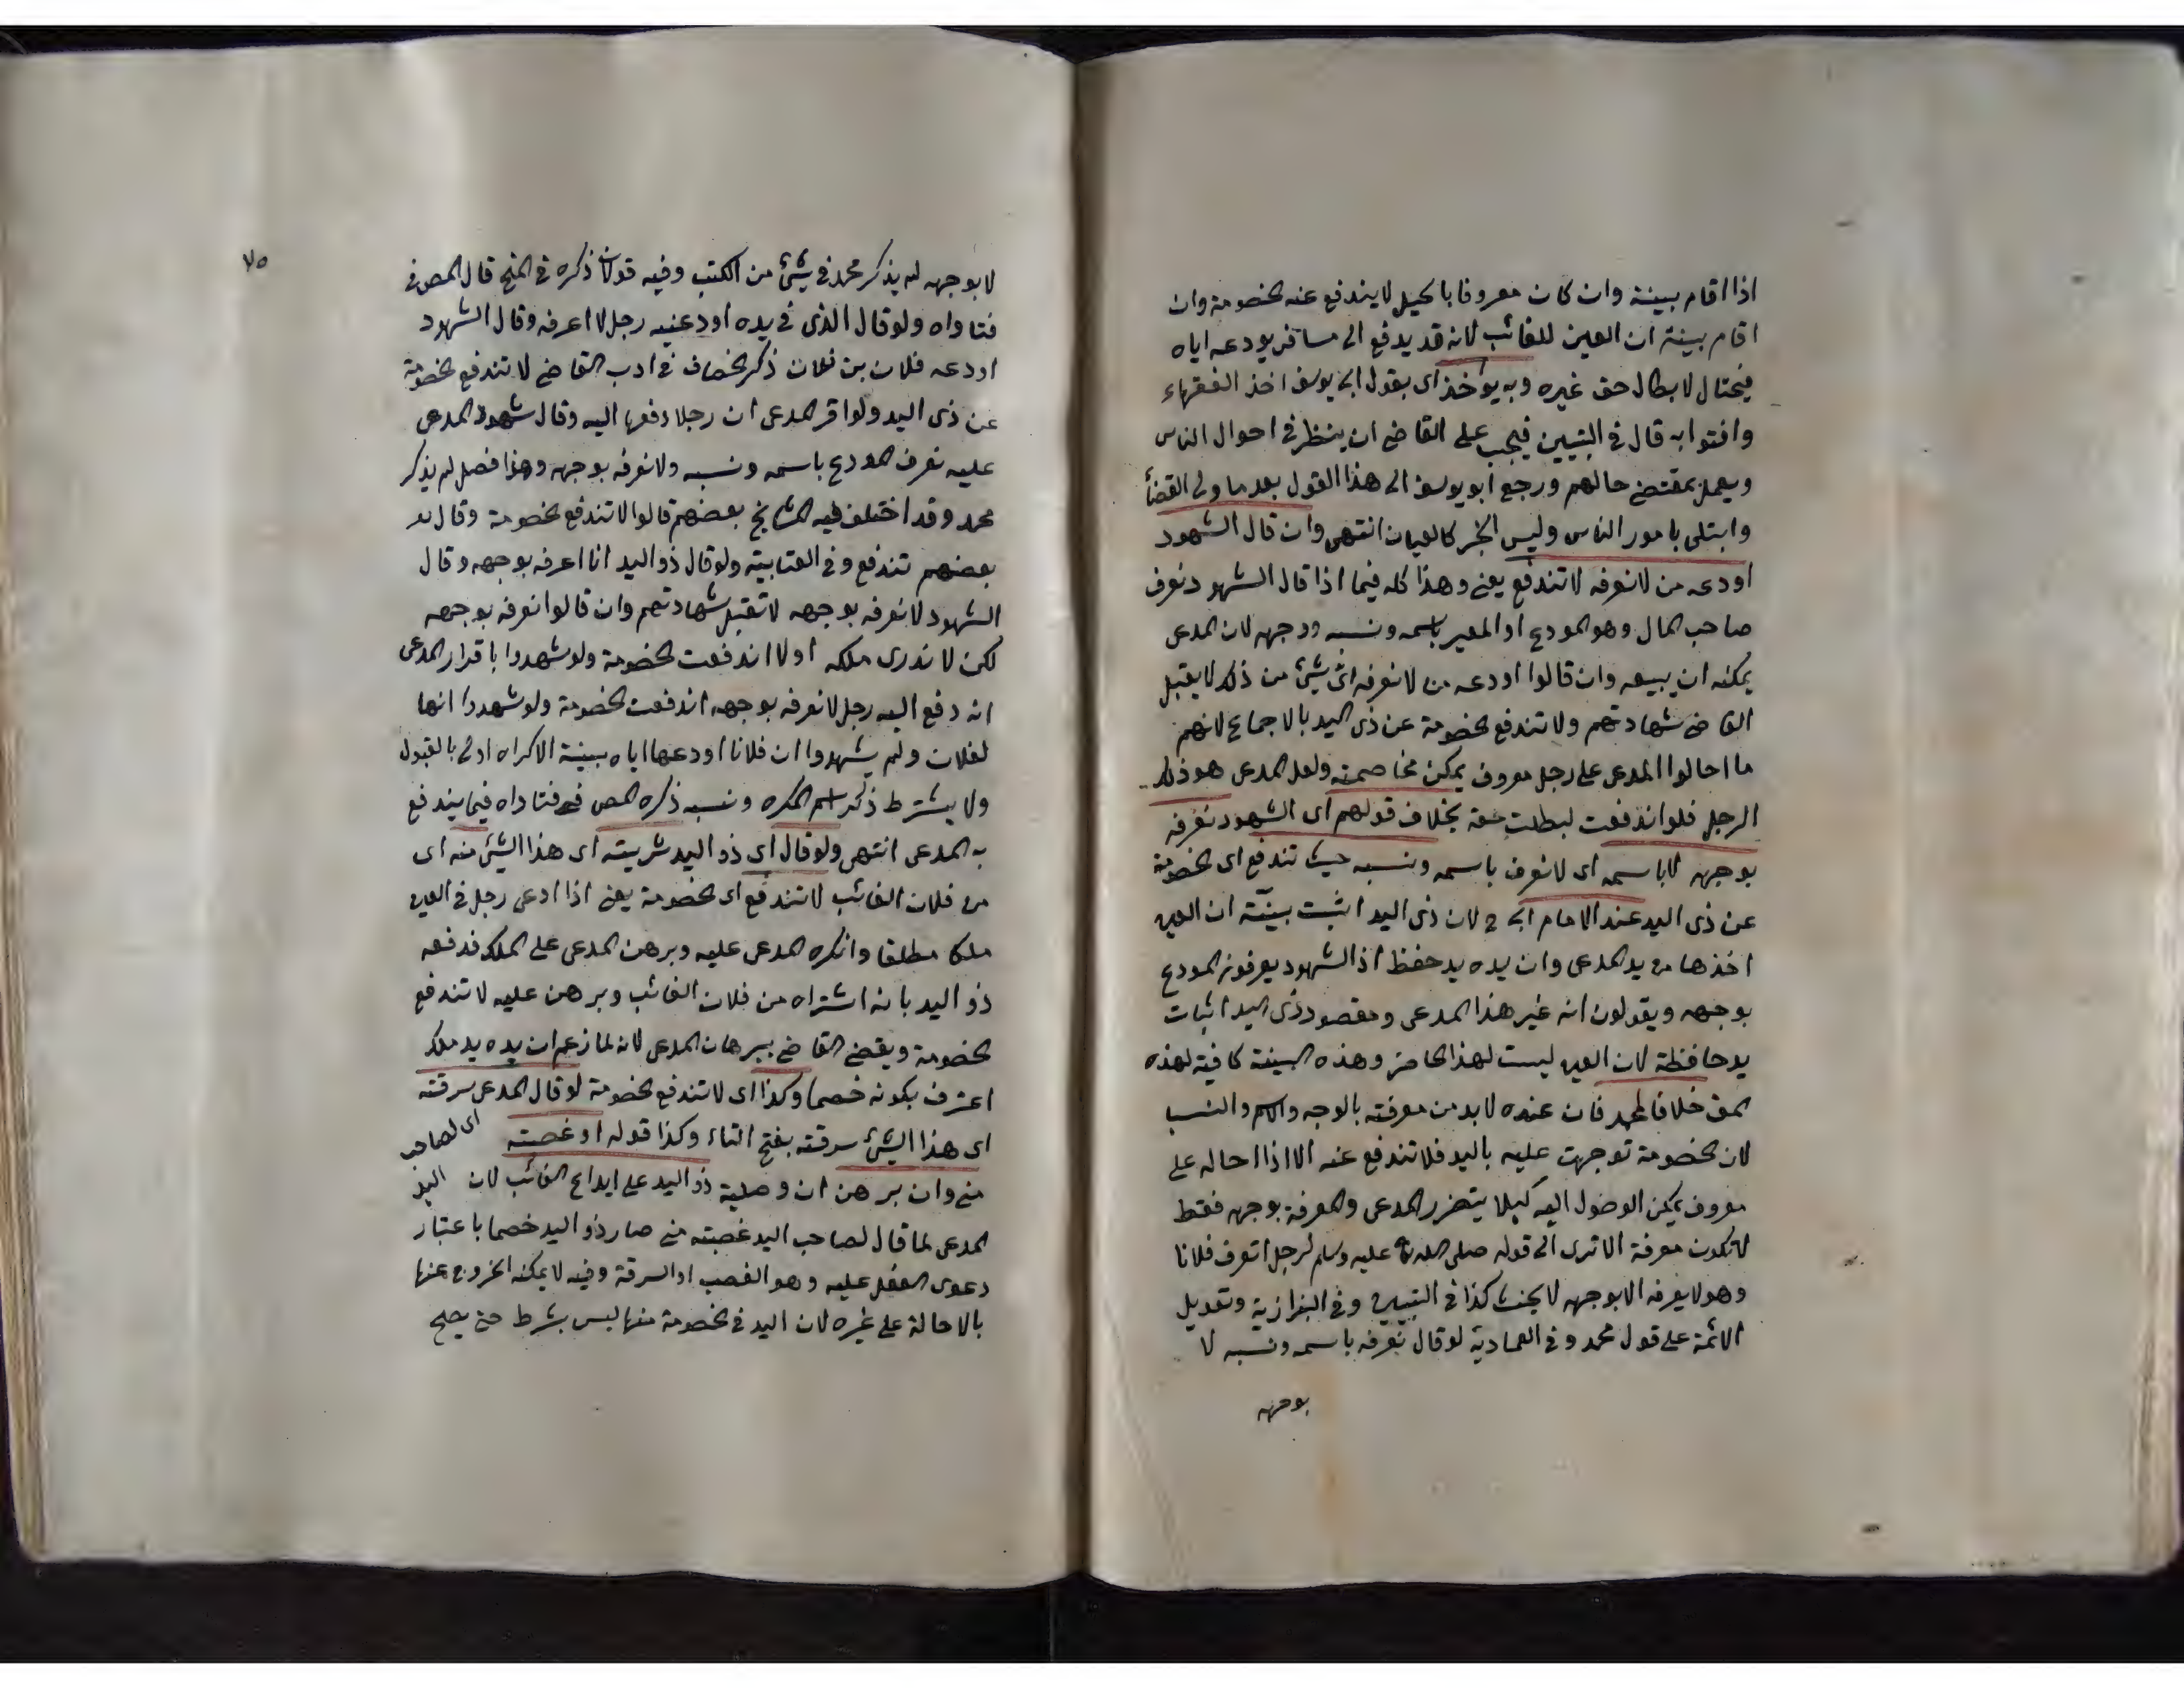 اذا اقام بينة وان كان معروفا بالحيل لا يندفع عنه الخصومة وان
اقام بينة ان العين للغائب لانه قد يدفع الى مسافر يودعه اياه
فيحتال لابطال حق غيره وبه يؤخذ اى بقول ابى يوسف اخذ الفقهاء
وافتوا به قال فى التبيين فيجب على القاضى ان ينظر فى احوال الناس
ويعمل بمقتضى حالهم ورجع ابو يوسف الى هذا القول بعد ما ولى القضاء
وابتلى بامور الناس وليس الخبر كالعيان انتهى وان قال الشهود
اودعه من لا نعرفه لا تندفع يعنى وهذا كله فيما اذا قال الشهود نعرف
صاحب المال وهو المودع او المعير باسمه ونسبه ووجهه لان المدعى
يمكنه ان يبيعه وان قالوا اودعه من لا نعرفه اى شئ من ذلك لا يقبل
القاضى شهادتهم ولا تندفع الخصومة عن ذى اليد بالاجماع لانهم
ما احالوا المدعى على رجل معروف يمكن مخاصمته ولعل المدعى هو ذلك
الرجل فلو اندفعت لبطلت حقه بخلاف قولهم اى الشهود نعرفه
بوجهه لا باسمه اى لا نعرف باسمه ونسبه حيث تندفع اى الخصومة
عن ذى اليد عند الامام ابى ح لان ذى اليد اثبت ببينته ان العين
اخذها من يد المدعى وان يده يد حفظ اذ الشهود يعرفونه المودع
بوجهه ويقولون انه غير هذا المدعى ومقصود ذى اليد اثبات
يد حافظة لان العين ليست لهذا الحاضر وهذه البينة كافية لهذه
المق خلافا لمحمد فان عنده لا بد من معرفته بالوجه والاسم والنسب
لان الخصومة توجهت عليه باليد فلا تندفع عنه الا اذا احاله على
معروف يمكن الوصول اليه كيلا يتضرر المدعى والمعرفة بوجهه فقط
لا تكون معرفة الا ترى الى قوله صلى الله تع عليه وسلم لرجل اتعرف فلانا
وهو لا يعرفه الا بوجهه لا يحنث كذا فى التبيين وفى البزازية وتعويل
الائمة على قول محمد وفى العمادية لو قال نعرفه باسمه ونسبه لا
بوجهه
٧٥
لا بوجهه لم يذكر محمد فى شئ من الكتب وفيه قولان ذكره فى المنح قال المص فى
فتاواه ولو قال الذى فى يده اودعنيه رجل لا اعرفه وقال الشهود
اودعه فلان بن فلان ذكر الخصاف فى ادب القاضى لا تندفع الخصومة
عن ذى اليد ولو اقر المدعى ان رجلا دفعها اليه وقال شهود المدعى
عليه نعرف المودع باسمه ونسبه ولا نعرفه بوجهه وهذا فصل لم يذكر
محمد وقد اختلف فيه المشايخ بعضهم قالوا لا تندفع الخصومة وقال
بعضهم تندفع وفى العتابية ولو قال ذو اليد انا اعرفه بوجهه وقال
الشهود لا نعرفه بوجهه لا تقبل شهادتهم وان قالوا نعرفه بوجهه
لكن لا ندرى ملكه اولا اندفعت الخصومة ولو شهدوا باقرار المدعى
انه دفع اليه رجل لا نعرفه بوجهه اندفعت الخصومة ولو شهدوا انها
لفلان ولم يشهدوا ان فلانا اودعها اياه بينة الاكراه اولى بالقبول
ولا يشترط ذكر اسم المكره ونسبه ذكره المص فى فتاواه فيما يندفع
به المدعى انتهى ولو قال اى ذو اليد شريته اى هذا الشئ منه اى
من فلان الغائب لا تندفع اى الخصومة يعنى اذا ادعى رجل فى العين
ملكا مطلقا وانكره المدعى عليه وبرهن المدعى على الملك فدفعه
ذو اليد بانه اشتراه من فلان الغائب وبرهن عليه لا تندفع
الخصومة ويقضى القاضى ببرهان المدعى لانه لما زعم ان يده يد ملك
اعترف بكونه خصما وكذا اى لا تندفع الخصومة لو قال المدعى سرقته
اى هذا الشئ سرقته بفتح التاء وكذا قوله او غصبته اى لصاحب اليد
منى وان برهن ان وصلية ذو اليد على ايداع الغائب لان
المدعى لما قال لصاحب اليد غصبته منى صار ذو اليد خصما باعتبار
دعوى الفعل عليه وهو الغصب او السرقة وفيه لا يمكنه الخروج عنها
بالاحالة على غيره لان اليد فى الخصومة فيها ليس بشرط حتى يصح